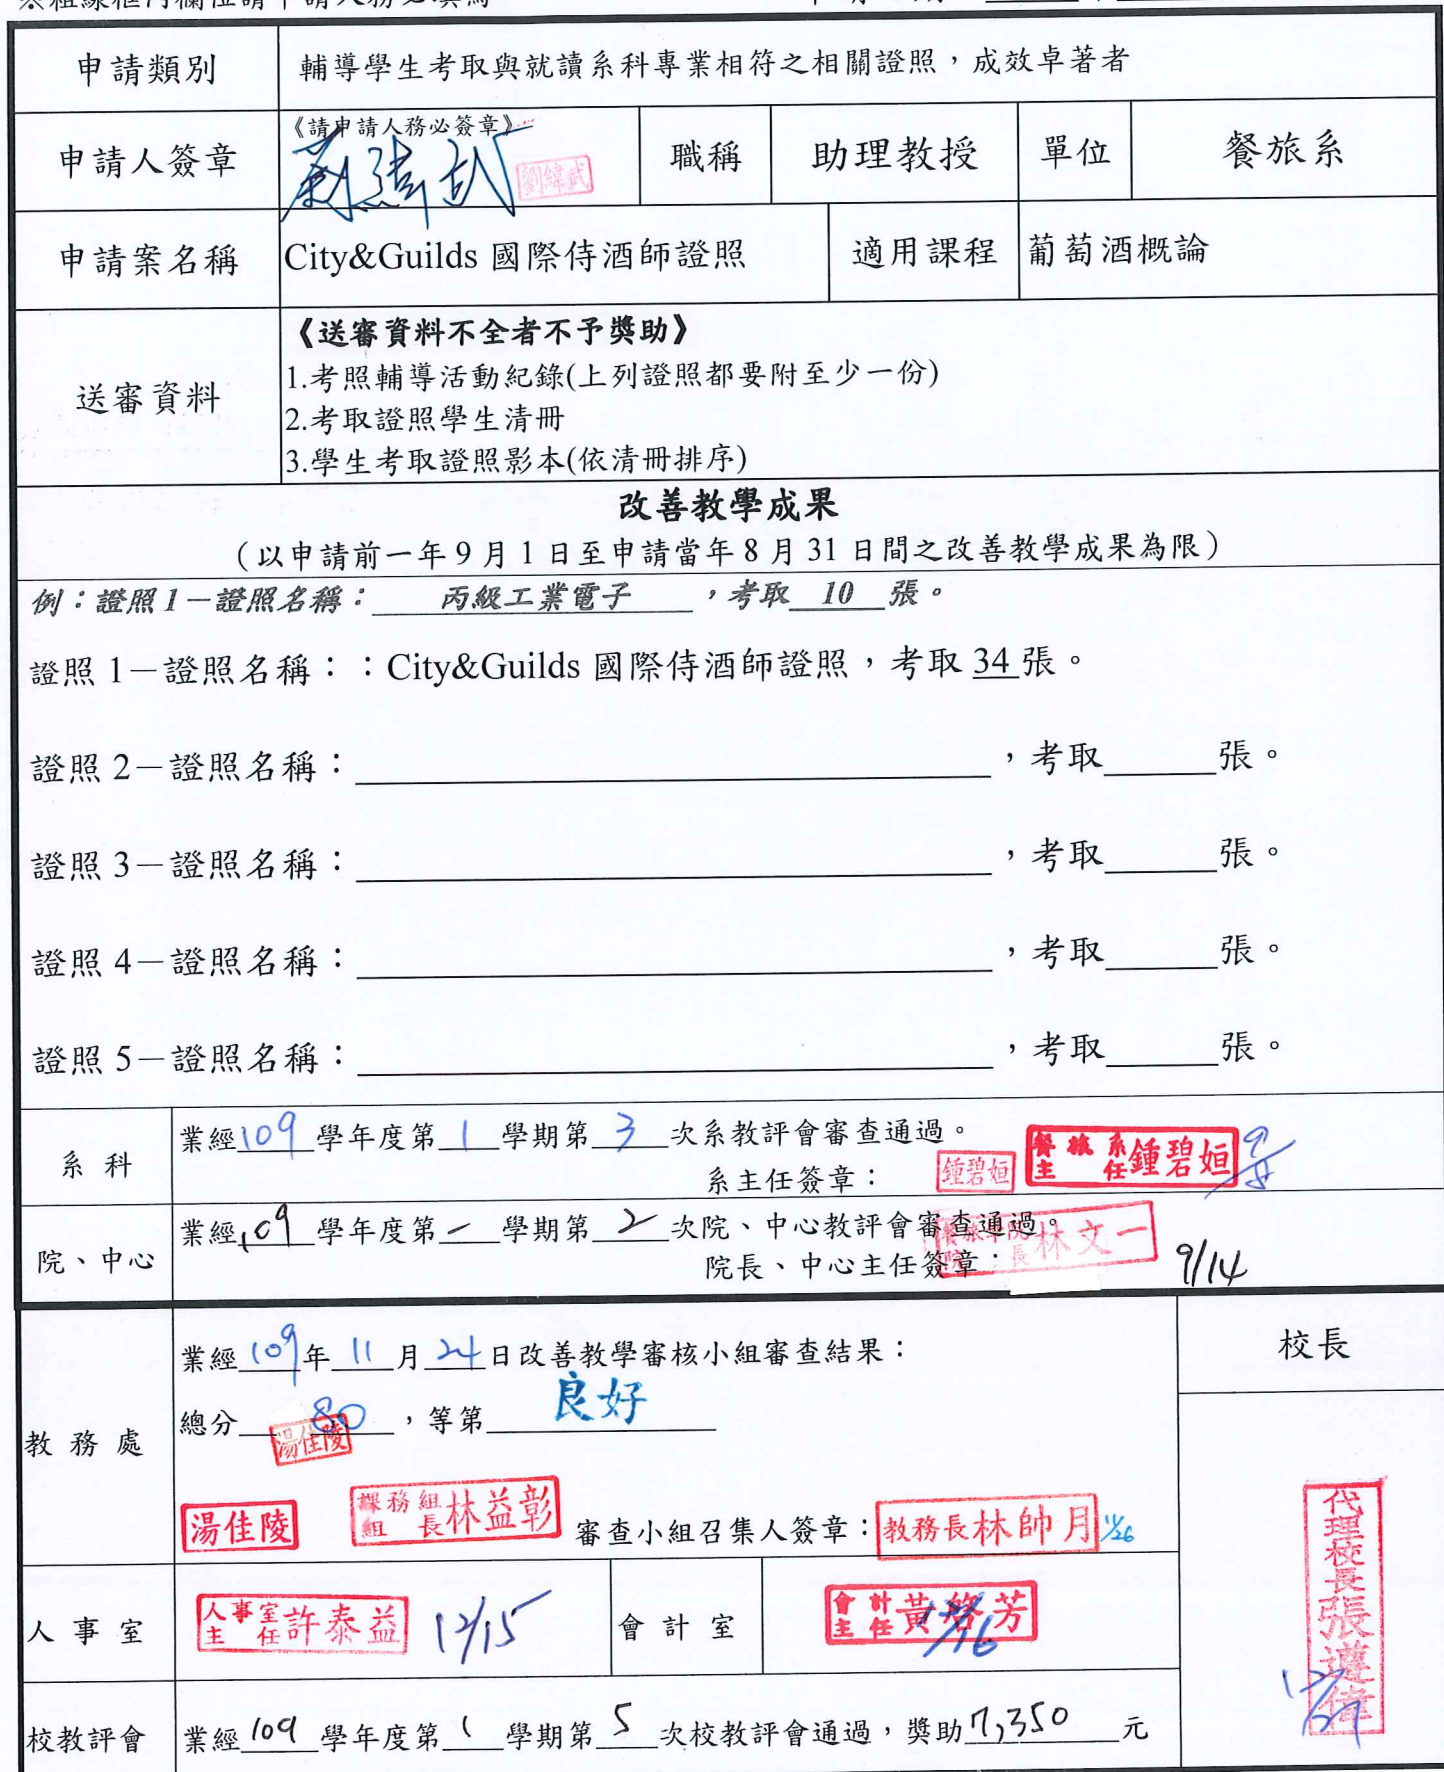 申請類別 輔導學生考取與就讀系科專業相符之相關證照，成效卓著者
《請申請人務必簽章》
申請人簽章 劉緯武 劉緯武 職稱 助理教授 單位 餐旅系
申請案名稱 City&Guilds 國際侍酒師證照 適用課程 葡萄酒概論
《送審資料不全者不予獎助》
1.考照輔導活動紀錄(上列證照都要附至少一份)
送審資料
2.考取證照學生清冊
3.學生考取證照影本(依清冊排序)
改善教學成果
（以申請前一年 9 月 1 日至申請當年 8 月 31 日間之改善教學成果為限）
例：證照 1－證照名稱： 丙級工業電子 ，考取 10 張。
證照 1－證照名稱：：City&Guilds 國際侍酒師證照，考取 34 張。
證照 2－證照名稱： ，考取 張。
證照 3－證照名稱： ，考取 張。
證照 4－證照名稱： ，考取 張。
證照 5－證照名稱： ，考取 張。
系 科 業經 109 學年度第 1 學期第 3 次系教評會審查通過。
系主任簽章： 鍾碧姮 餐旅系主任鍾碧姮 9/8
院、中心 業經 109 學年度第 一 學期第 2 次院、中心教評會審查通過。
院長、中心主任簽章： 餐旅學院院長林文一 9/14
業經 109 年 11 月 24 日改善教學審核小組審查結果： 校長
總分 80 ，等第 良好
湯佳陵
教 務 處
湯佳陵 課務組組長林益彰 審查小組召集人簽章：教務長林帥月 11/26
代理校長張遵偉 12/27
人 事 室 人事室主任許泰益 12/15 會 計 室 會計主任黃啓芳 12/16
校教評會 業經 109 學年度第 1 學期第 5 次校教評會通過，獎助 7,350 元